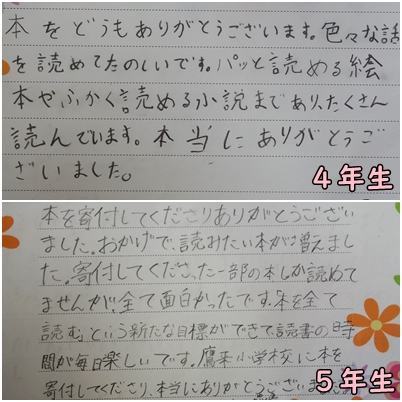 本をどうもありがとうございます。色々な話
を読めてたのしいです。パッと読める絵
本やふかく読める小説まであり、たくさん
読んでいます。本当にありがとうご
ざいました。
4年生
本を寄付してくださりありがとうござい
ました。おかげで、読みたい本が増えまし
た。寄付してくださった一部の本しか読めて
ませんが、全て面白かったです。「本を全て
読む」という新たな目標ができて読書の時
間が毎日楽しいです。鷹来小学校に本を
寄付してくださり、本当にありがとうございました
5年生